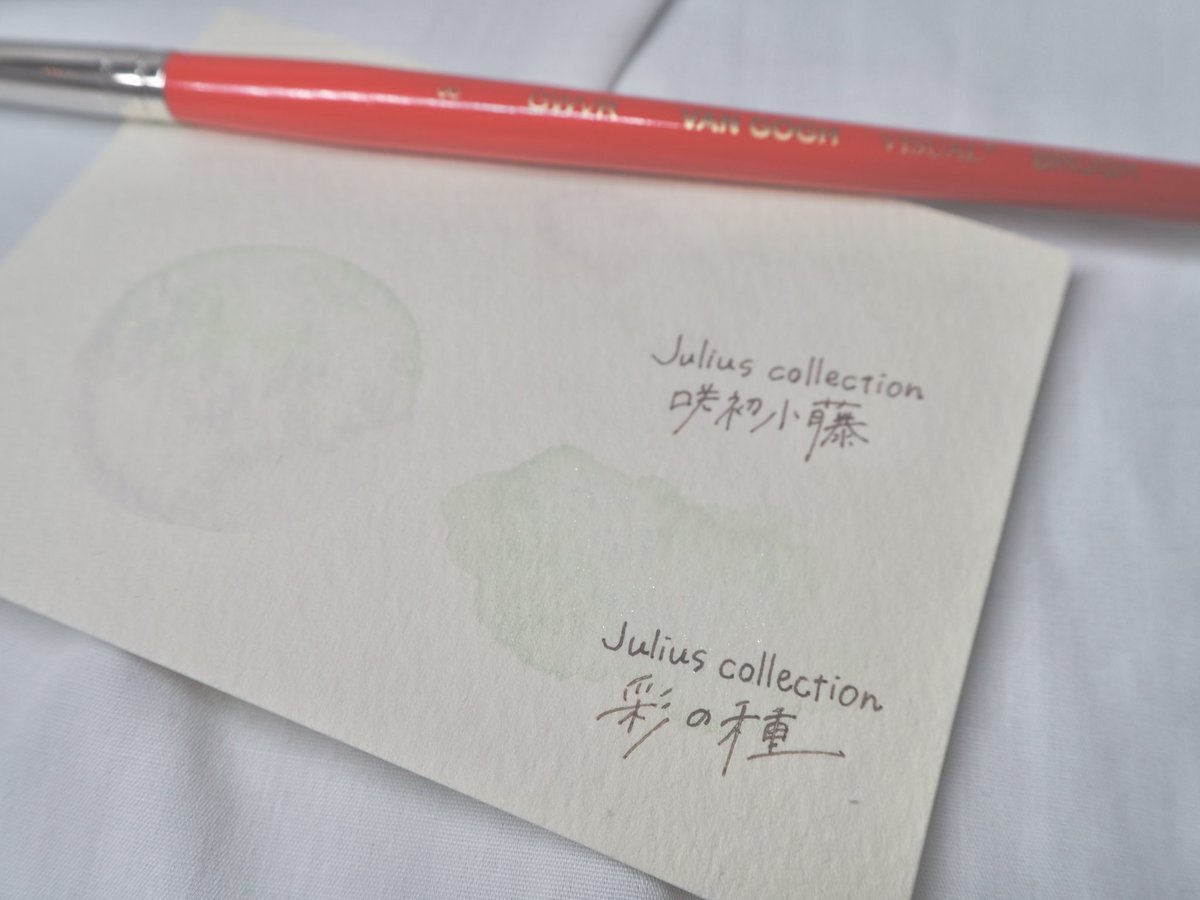 VAN GOGH VISUAL BRUSH
Julius collection
咲初小藤
Julius collection
彩の種